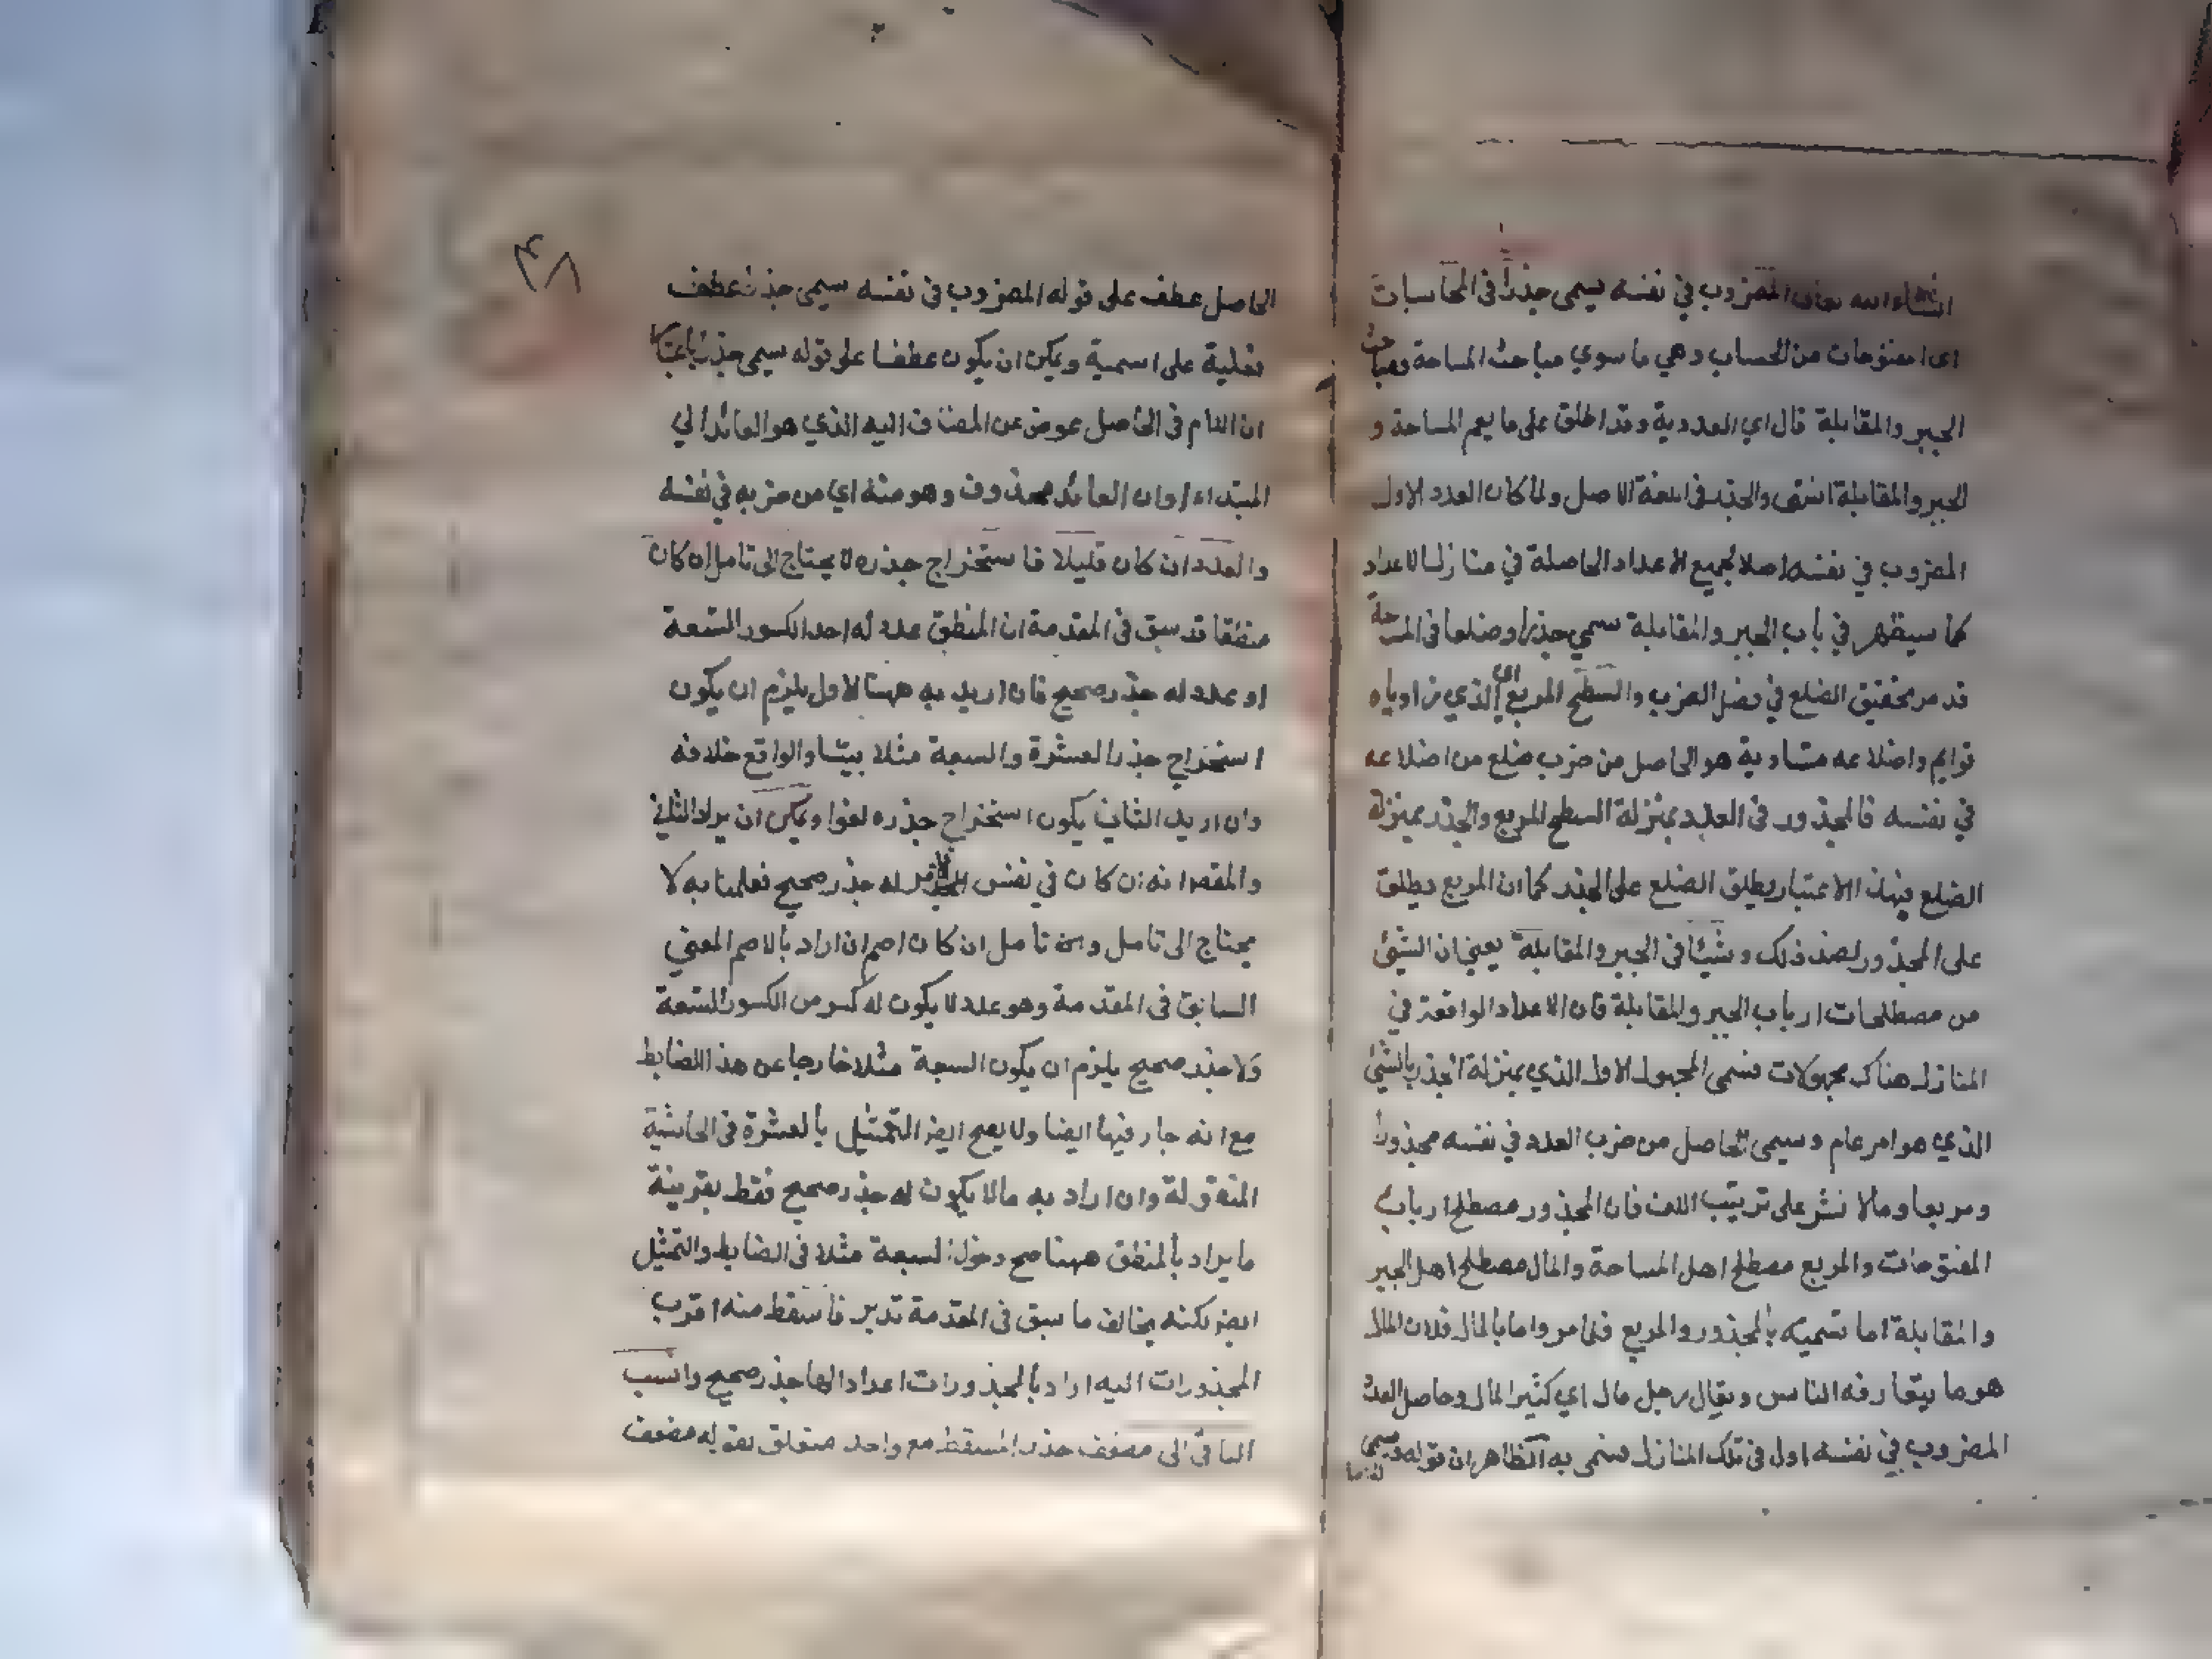 انشاء الله تعالى المضروب في نفسه يسمى جذرا في المحاسبات
اي المفتوحات من الحساب وهي ما سوي مباحث المساحة ومباحث
الجبر والمقابلة قال اي العددية وقد اطلق على ما يعم المساحة و
الجبر والمقابلة انتهى والجذر في اللغة الاصل ولما كان العدد الاول
المضروب في نفسه اصلا لجميع الاعداد الحاصلة في منازل الاعداد
كما سيظهر في باب الجبر والمقابلة سمي جذرا وضلعا في المساحة
قد مر تحقيق الضلع في فصل الضرب والسطح المربع اي الذي زاوياه
قوايم واضلاعه متساوية هو الحاصل من ضرب ضلع من اضلاعه
في نفسه فالمجذور في العدد بمنزلة السطح المربع والجذر بمنزلة
الضلع فبهذا الاعتبار يطلق الضلع على الجذر كما ان المربع يطلق
على المجذور لصد ذلك وشيئا في الجبر والمقابلة يعني ان الشئ
من مصطلحات ارباب الجبر والمقابلة فان الاعداد الواقعة في
المنازل هناك مجهولات فسمى المجهول الاول الذي بمنزلة الجذر بالشئ
الذي هو امر عام وسيمى الحاصل من ضرب العدد في نفسه مجذورا
ومربعا ومالا نشر على ترتيب اللف فان المجذور مصطلح ارباب
المفتوحات والمربع مصطلح اهل المساحة والمال مصطلح اهل الجبر
والمقابلة اما تسميته بالمجذور والمربع فلما مر واما بالمال فلان المال
هو ما يتعارفه الناس ويقال رجل مال اي كثير المال وحاصل العدد
المضروب في نفسه اول في تلك المنازل سمى به الظاهر ان قوله ويسمى
الحاصل عطف على قوله المضروب في نفسه سيمى جذرا عطف
فعلية على اسمية ويمكن ان يكون عطفا على قوله سيمى جذرا باعتبار
ان اللام في الحاصل عوض عن المضاف اليه الذي هو العائد الي
المبتداء او ان العائد محذوف وهو منه اي من ضربه في نفسه
والعدد ان كان قليلا فاستخراج جذره لا يحتاج الى تامل ان كان
منطقا قد سبق في المقدمة ان المنطق عدد له احد الكسور التسعة
او عدد له جذر صحيح فان اريد به ههنا الاول يلزم ان يكون
استخراج جذر العشرة والسبعة مثلا بينا والواقع خلافه
وان اريد الثاني يكون استخراج جذره لغوا ويمكن ان يراد الثاني
والمقصد انه ان كان في نفس الامر له جذر صحيح فعلمنا به لا
يحتاج الى تامل وبه تامل ان كان اصم ان اراد بالاصم المعني
السابق في المقدمة وهو عدد لا يكون له كسر من الكسور التسعة
ولا جذر صحيح يلزم ان يكون السبعة مثلا خارجا عن هذا الضابط
مع انه جار فيها ايضا ولا يصح ايض التمثيل بالعشرة في الحاشية
المنقولة وان اراد به ما لا يكون له جذر صحيح فقط بقرينة
ما يراد بالمنطق ههنا صح دخول السبعة مثلا في الضابط والتمثيل
ايض لكنه يخالف ما سبق في المقدمة تدبر فاسقط منه اقرب
المجذورات اليه اراد بالمجذورات اعداد الها جذر صحيح وانسب
الباقي الى مضعف جذر المسقط مع واحد متعلق بقوله مضعف
۴۸